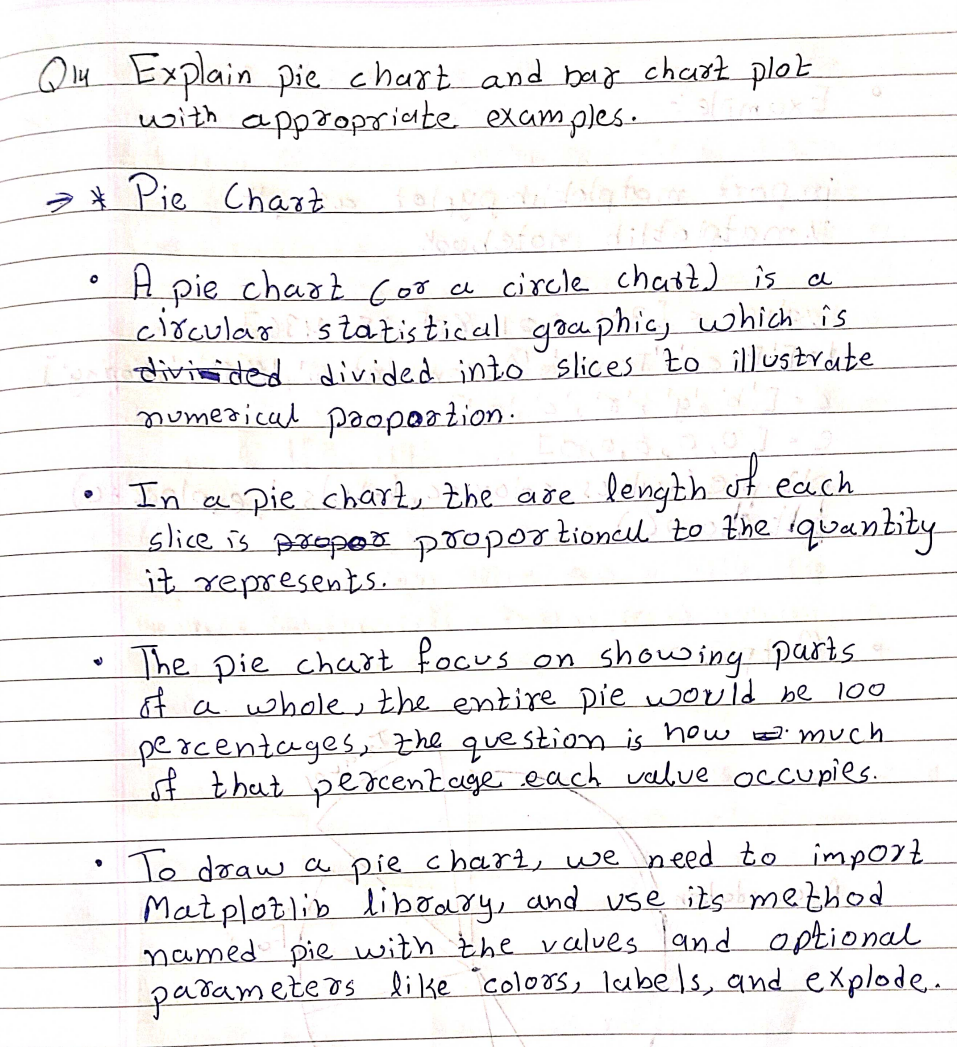 Q14 Explain pie chart and bar chart plot
with appropriate examples.
→ * Pie Chart
• A pie chart (or a circle chart) is a
circular statistical graphic, which is
divided divided into slices to illustrate
numerical proportion.
• In a pie chart, the are length of each
slice is propor proportional to the quantity
it represents.
• The pie chart focus on showing parts
of a whole, the entire pie would be 100
percentages, the question is how much
of that percentage each value occupies.
• To draw a pie chart, we need to import
Matplotlib library, and use its method
named pie with the values and optional
parameters like colors, labels, and explode.